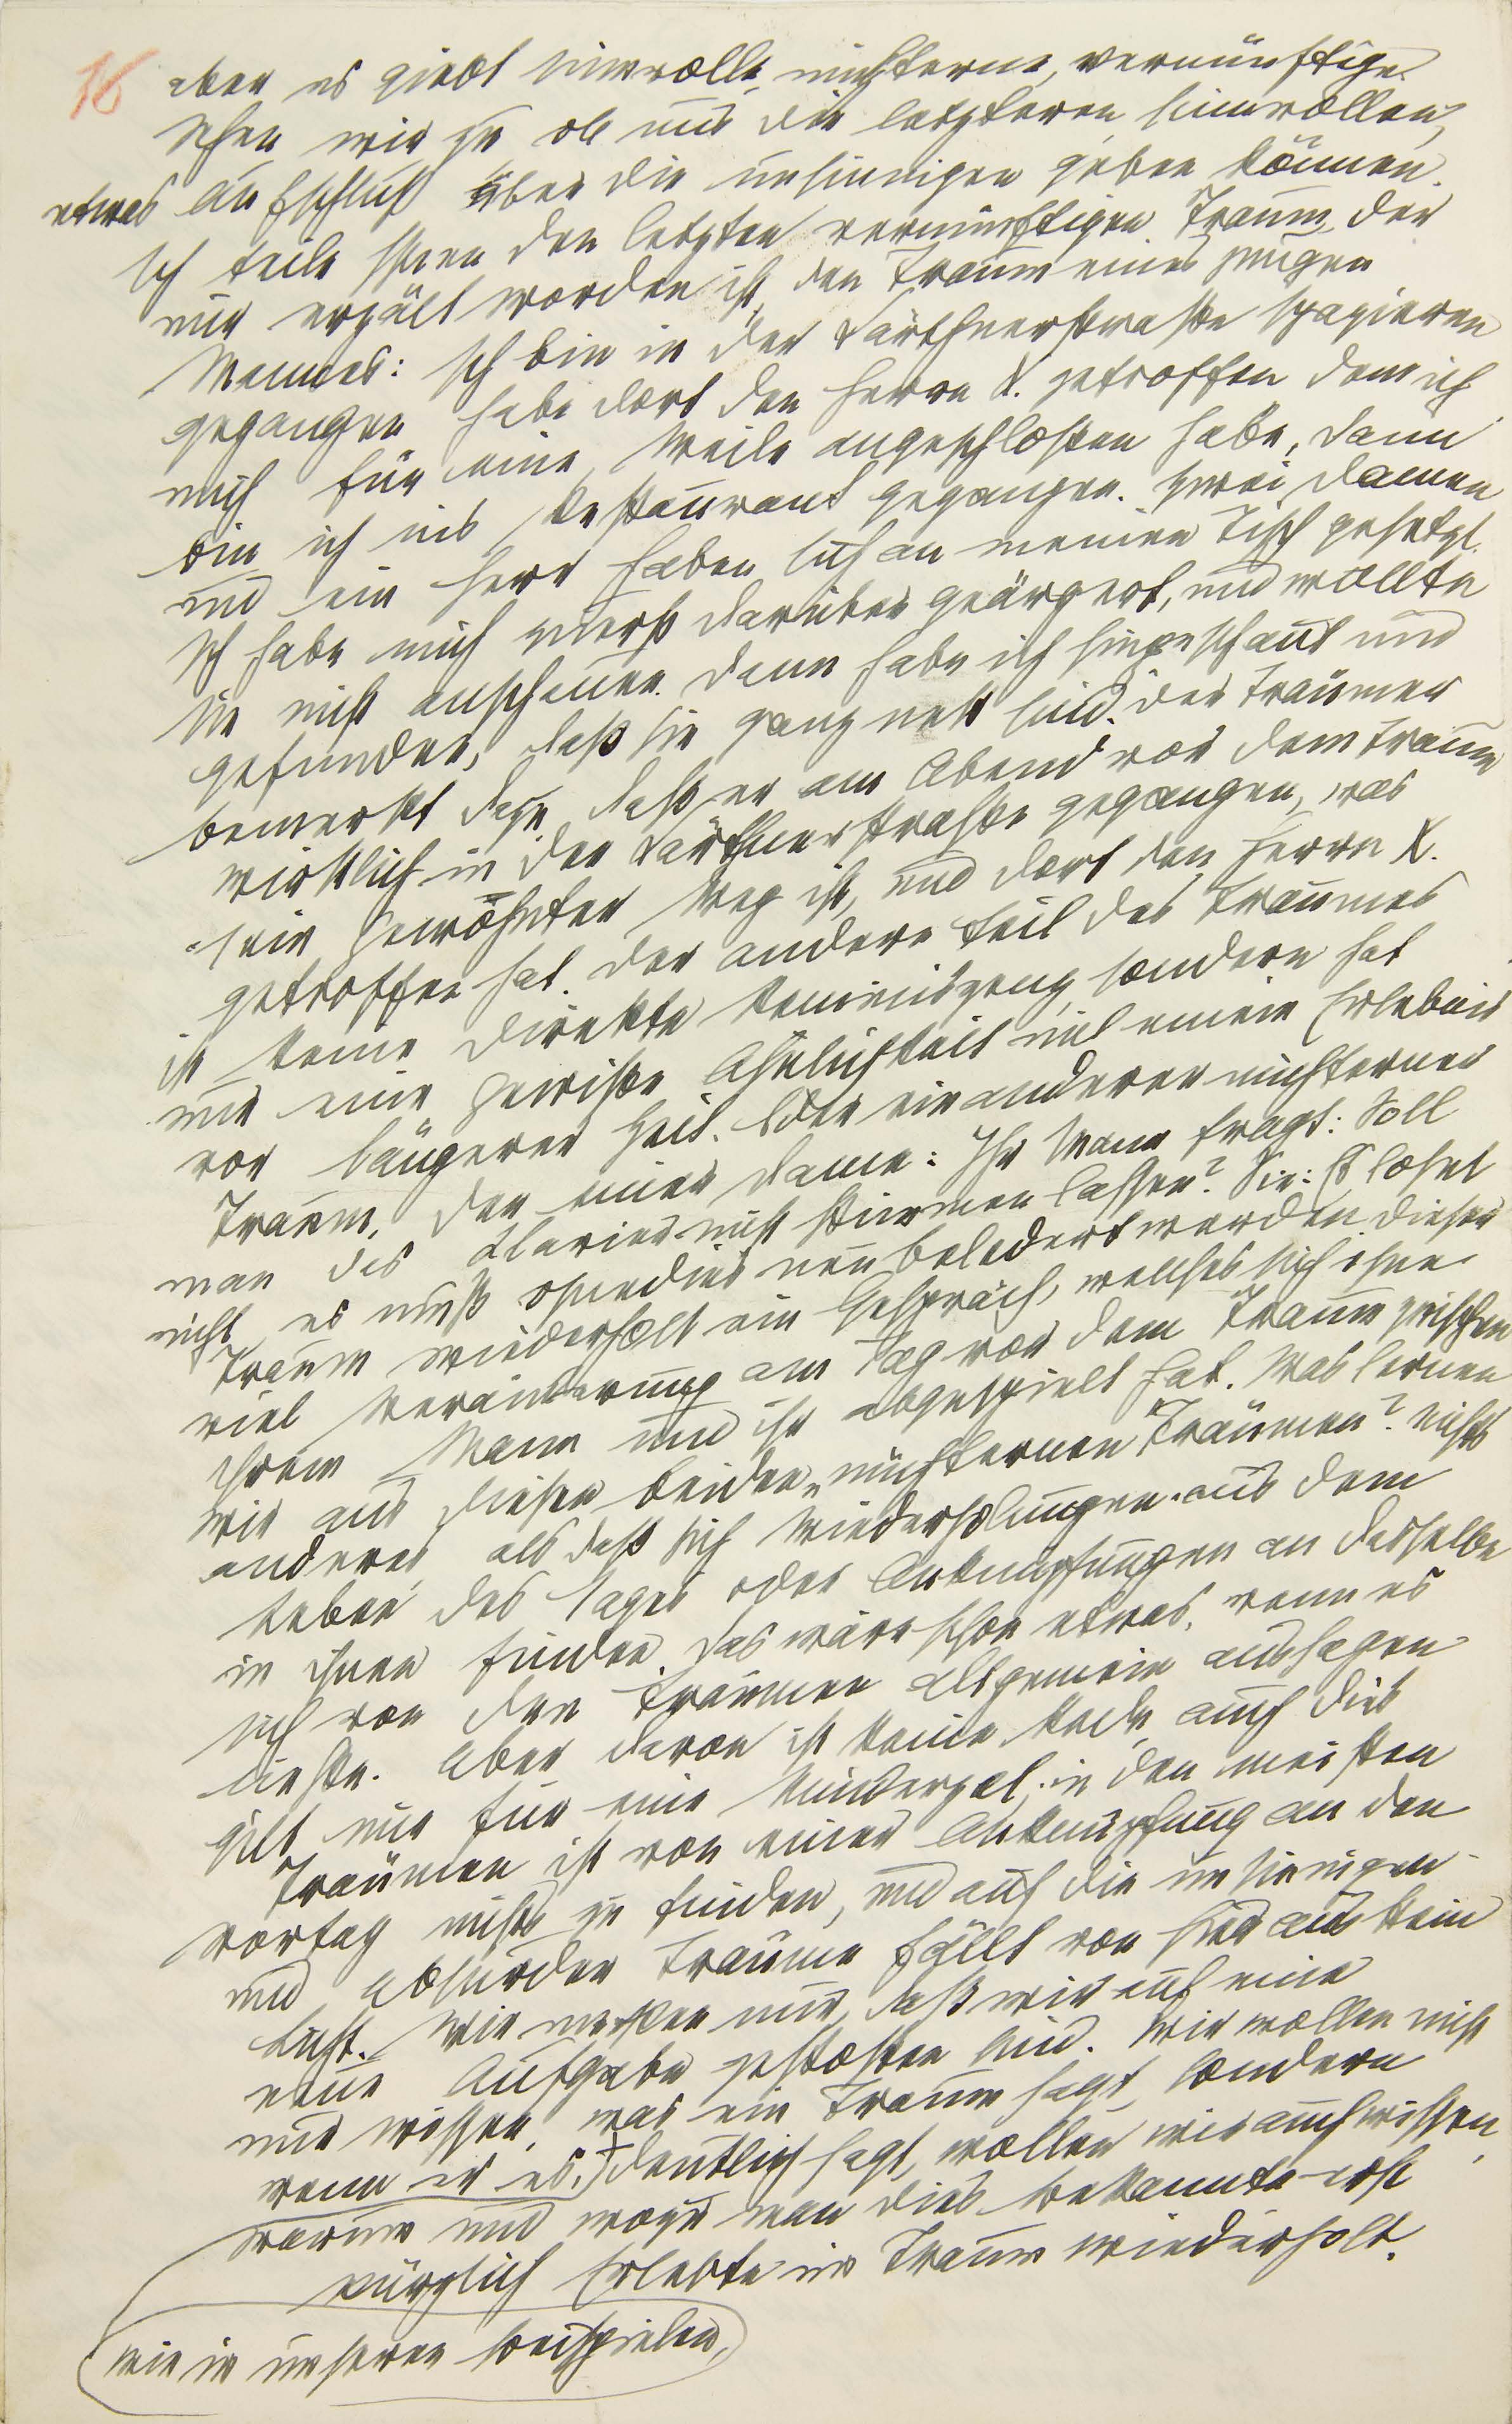 16
aber es giebt sinnvolle, nüchterne, vernünftige.
Sehen wir zu ob uns die letzteren sinnvollen,
etwas Aufschluß über die unsinnigen geben können.
Ich teile Ihnen den letzten vernünftigen Traum, der
mir erzält worden ist, den Traum eines jungen
Mannes: Ich bin in der Kärthnerstrasse spazieren
gegangen, habe dort den Herrn X. getroffen dem ich
mich für eine Weile angeschlossen habe, dann
bin ich ins Restaurant gegangen. Zwei Damen
und ein Herr haben sich an meinen Tisch gesetzt.
Ich habe mich zuerst darüber geärgert, und wollte
sie nicht anschauen. Dann habe ich hingeschaut und
gefunden, daß sie ganz nett sind. Der Träumer
bemerkt dazu, daß er am Abend vor dem Traum
wirklich in der Kärthnerstraße gegangen, was
sein gewöhnter Weg ist, und dort den Herrn X.
getroffen hat. Der andere Teil des Traumes
ist keine direkte Reminiszenz, sondern hat
nur eine gewisse Ähnlichkeit mit einem Erlebnis
vor längerer Zeit. Oder ein anderer nüchterner
Traum, der einer Dame: Ihr Mann fragt: Soll
man das Klavier nicht stimmen lassen? Sie: Es lohnt
nicht, es muß ohnedies neu beledert werden. Dieser
Traum wiederholt ein Gespräch, welches sich ohne
viel Veränderung am Tag vor dem Traum zwischen
ihrem Mann und ihr abgespielt hat. Was lernen
wir aus diesen beiden nüchternen Träumen? Nichts
anderes, als daß sich Wiederholungen aus dem
Leben des Tages oder Anknüpfungen an dasselbe
in ihnen finden. Das wäre schon etwas, wenn es
sich von den Träumen allgemein aussagen
ließe. Aber davon ist keine Rede, auch dies
gilt nur für eine Minderzal; in den meisten
Träumen ist von einer Anknüpfung an den
Vortag nichts zu finden, und auf die unsinnigen
und absurden Träume fällt von hier aus kein
Licht. Wir wissen nur, daß wir auf eine
neue Aufgabe gestoßen sind. Wir wollen nicht
nur wissen, was ein Traum sagt, sondern
wenn er es, + deutlich sagt, wollen wir auch wissen,
warum und wozu man dies bekannte erst
kürzlich Erlebte im Traum wiederholt.
wie in unseren Beispielen,